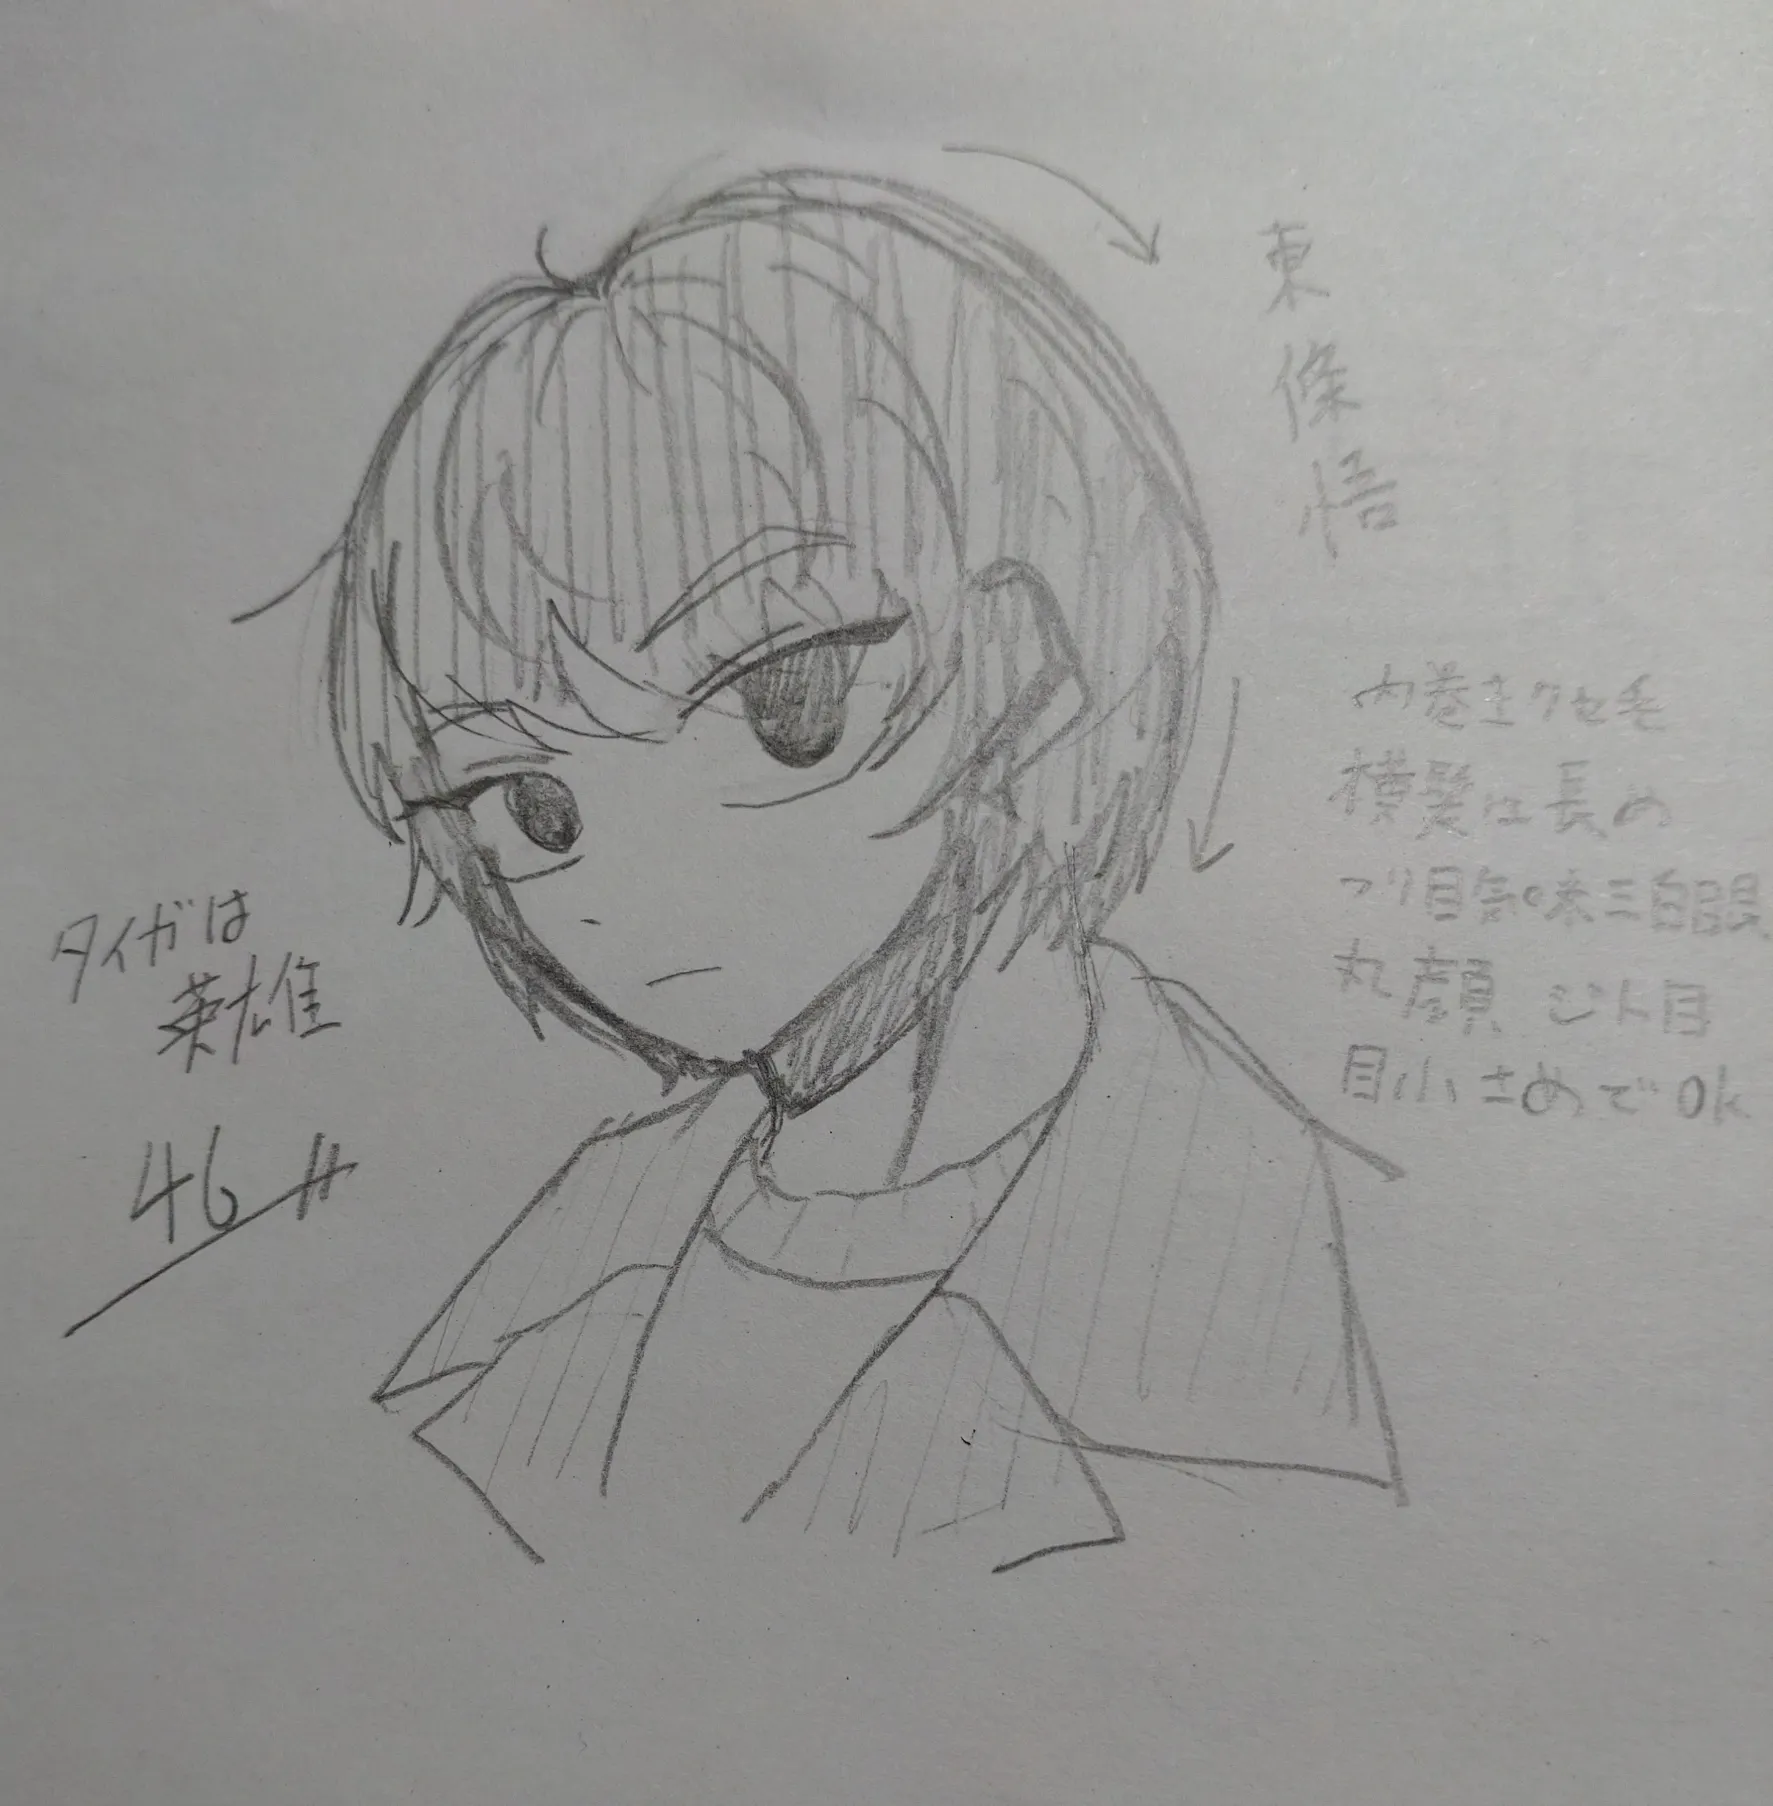 東條悟
内巻きクセ毛
横髪は長め
ツリ目気味三白眼
丸顔 ジト目
目小さめでOk
タイガは
英雄
46